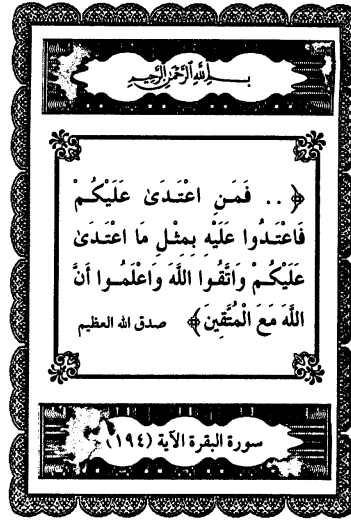 بسم الله الرحمن الرحيم
﴿ .. فَمَنِ اعْتَدَىٰ عَلَيْكُمْ
فَاعْتَدُوا عَلَيْهِ بِمِثْلِ مَا اعْتَدَىٰ
عَلَيْكُمْ وَاتَّقُوا اللَّهَ وَاعْلَمُوا أَنَّ
اللَّهَ مَعَ الْمُتَّقِينَ ﴾ صدق الله العظيم
سورة البقرة الآية (١٩٤)